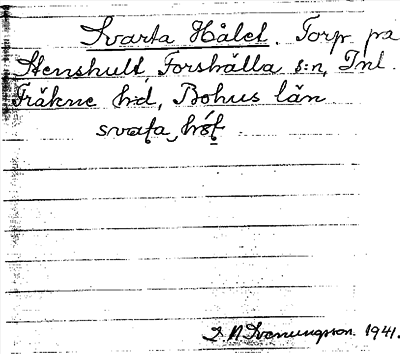 Svarta Hålet. Torp på
Stenshult, Forshälla s:n, Inl.
Fräkne hd, Bohus län
svata
S N Svenungsson 1941.